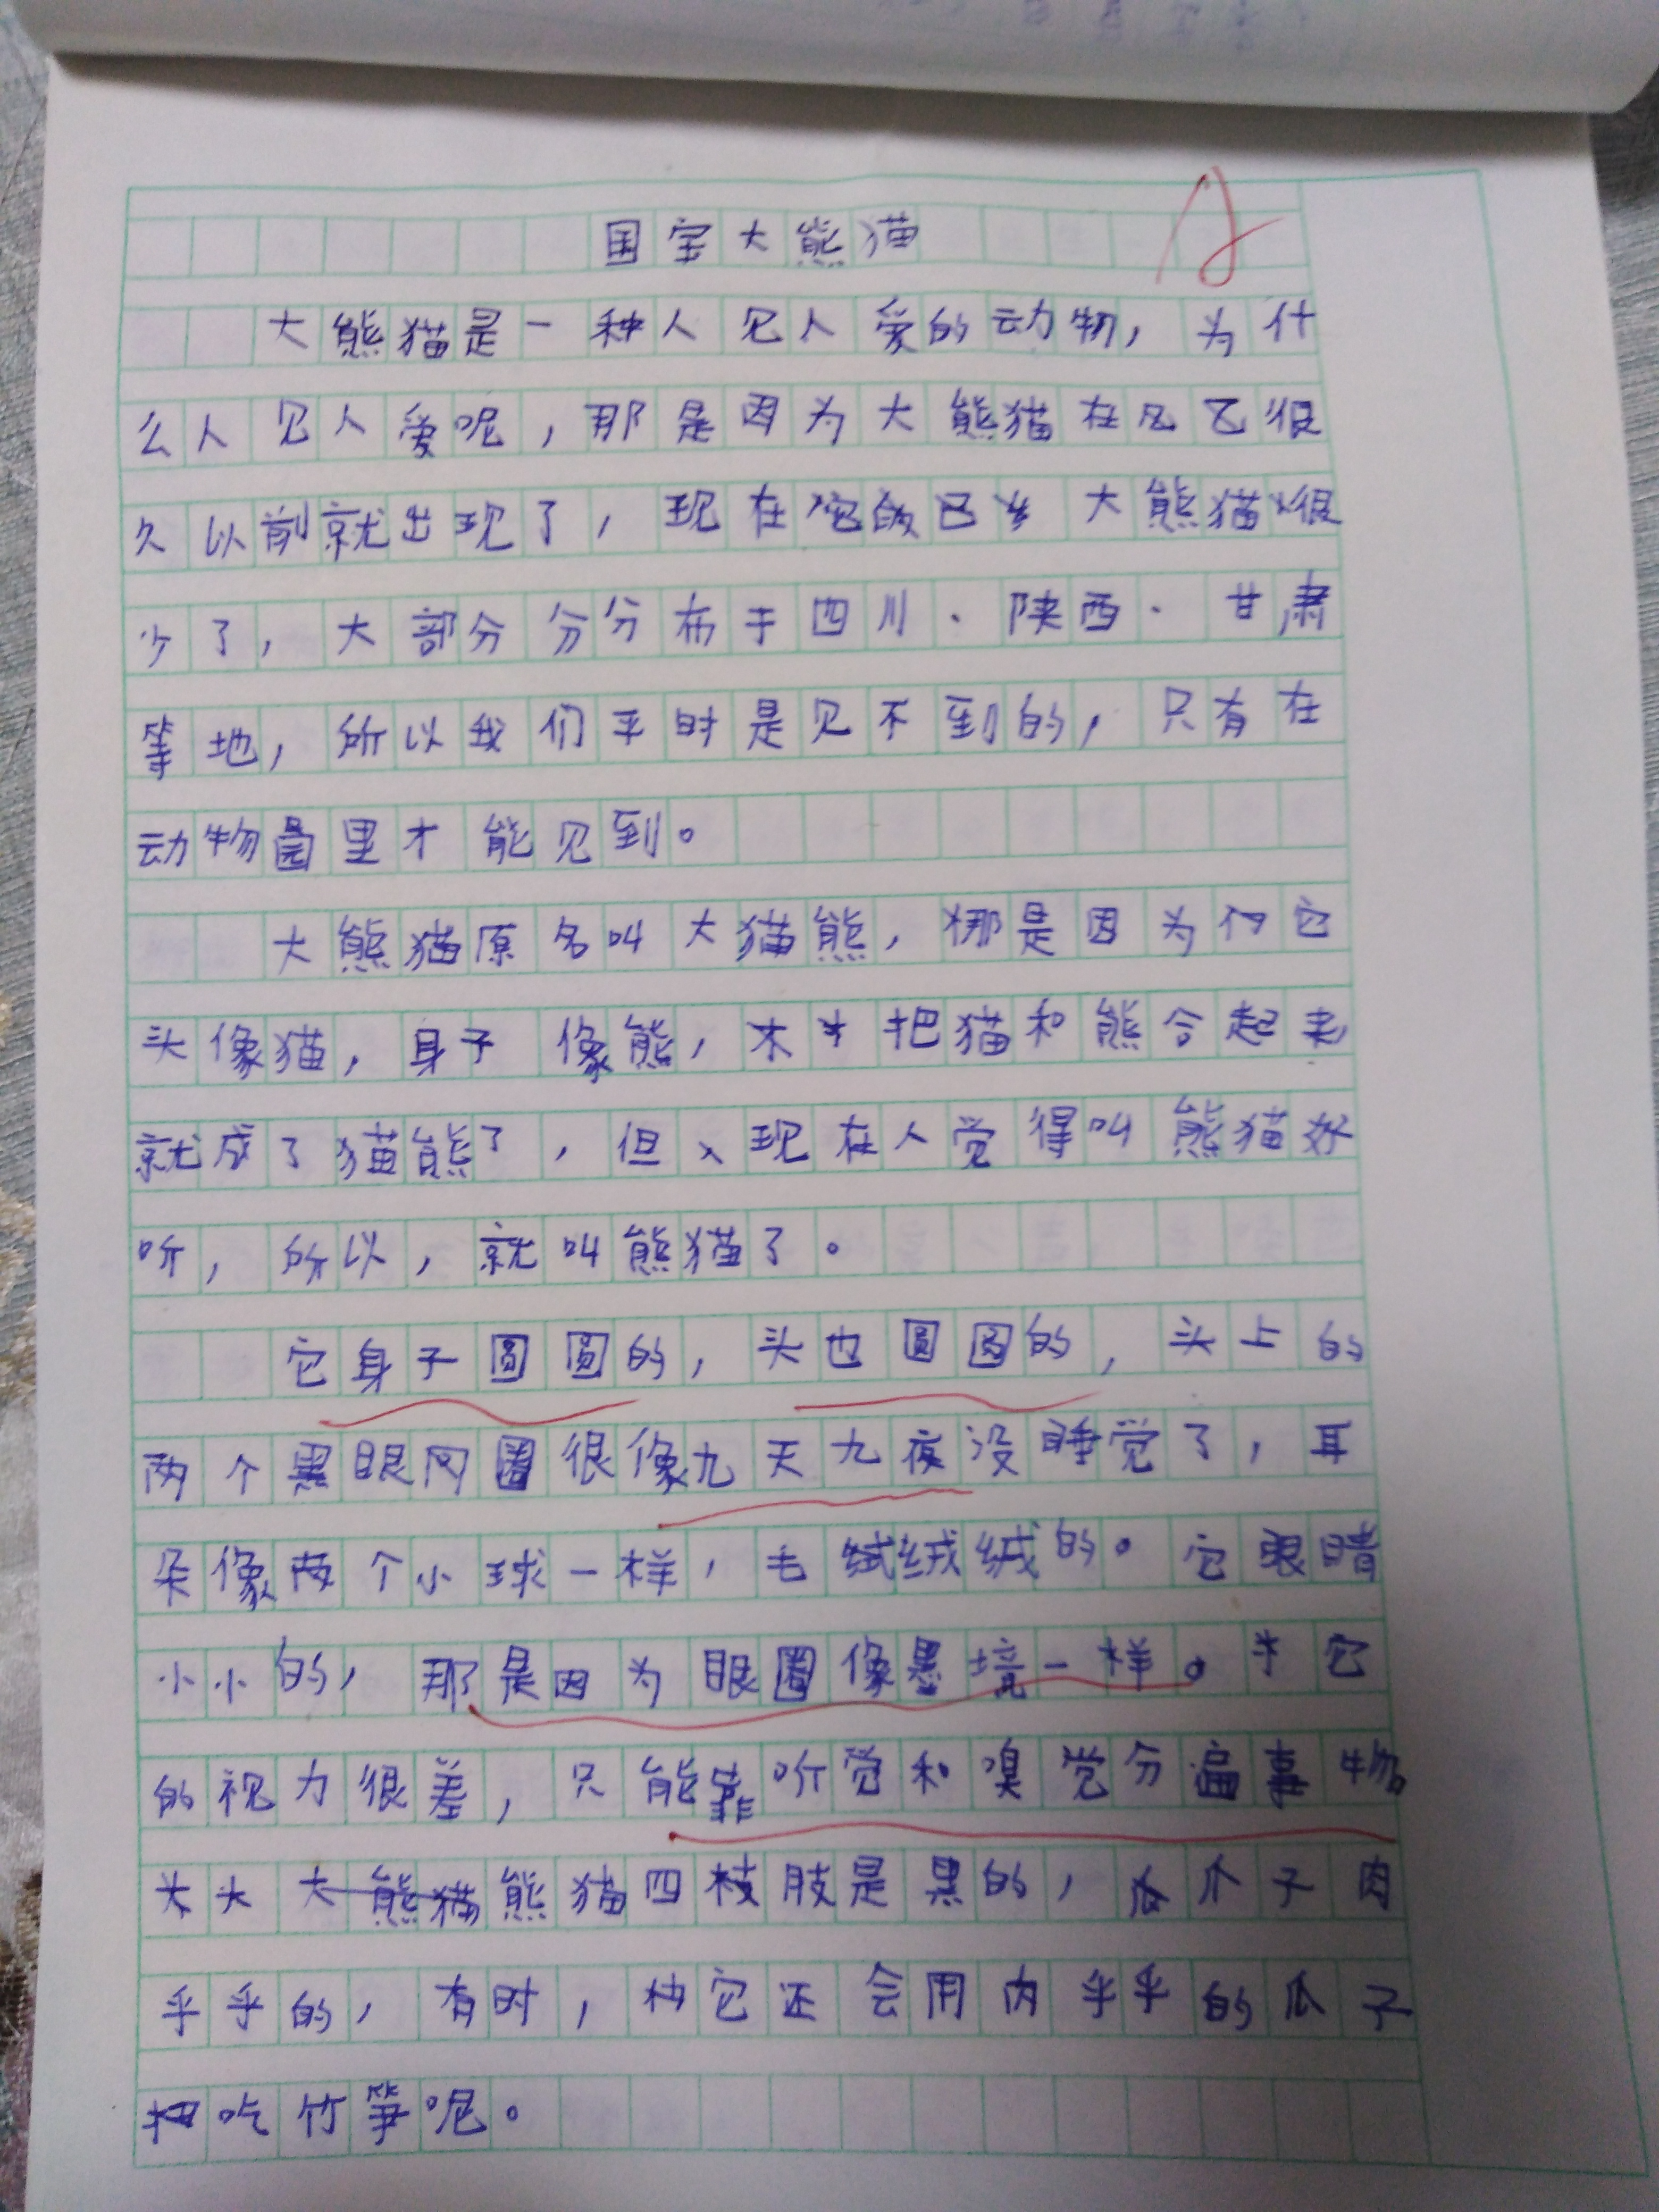 国宝大熊猫
大熊猫是一种人见人爱的动物，为什
么人见人爱呢，那是因为大熊猫在很
久以前就出现了，现在大熊猫很
少了，大部分分布于四川、陕西、甘肃
等地，所以我们平时是见不到的，只有在
动物园里才能见到。
大熊猫原名叫大猫熊，那是因为它
头像猫，身子像熊，把猫和熊合起来
就成了猫熊了，但现在人觉得叫熊猫好
听，所以，就叫熊猫了。
它身子圆圆的，头也圆圆的，头上的
两个黑眼圈很像九天九夜没睡觉了，耳
朵像两个小球一样，毛绒绒的。它眼睛
小小的，那是因为眼圈像墨境一样。它
的视力很差，只能靠听觉和嗅觉分遍事物。
熊猫四肢是黑的，爪子肉
乎乎的，有时，它还会用肉乎乎的瓜子
吃竹笋呢。